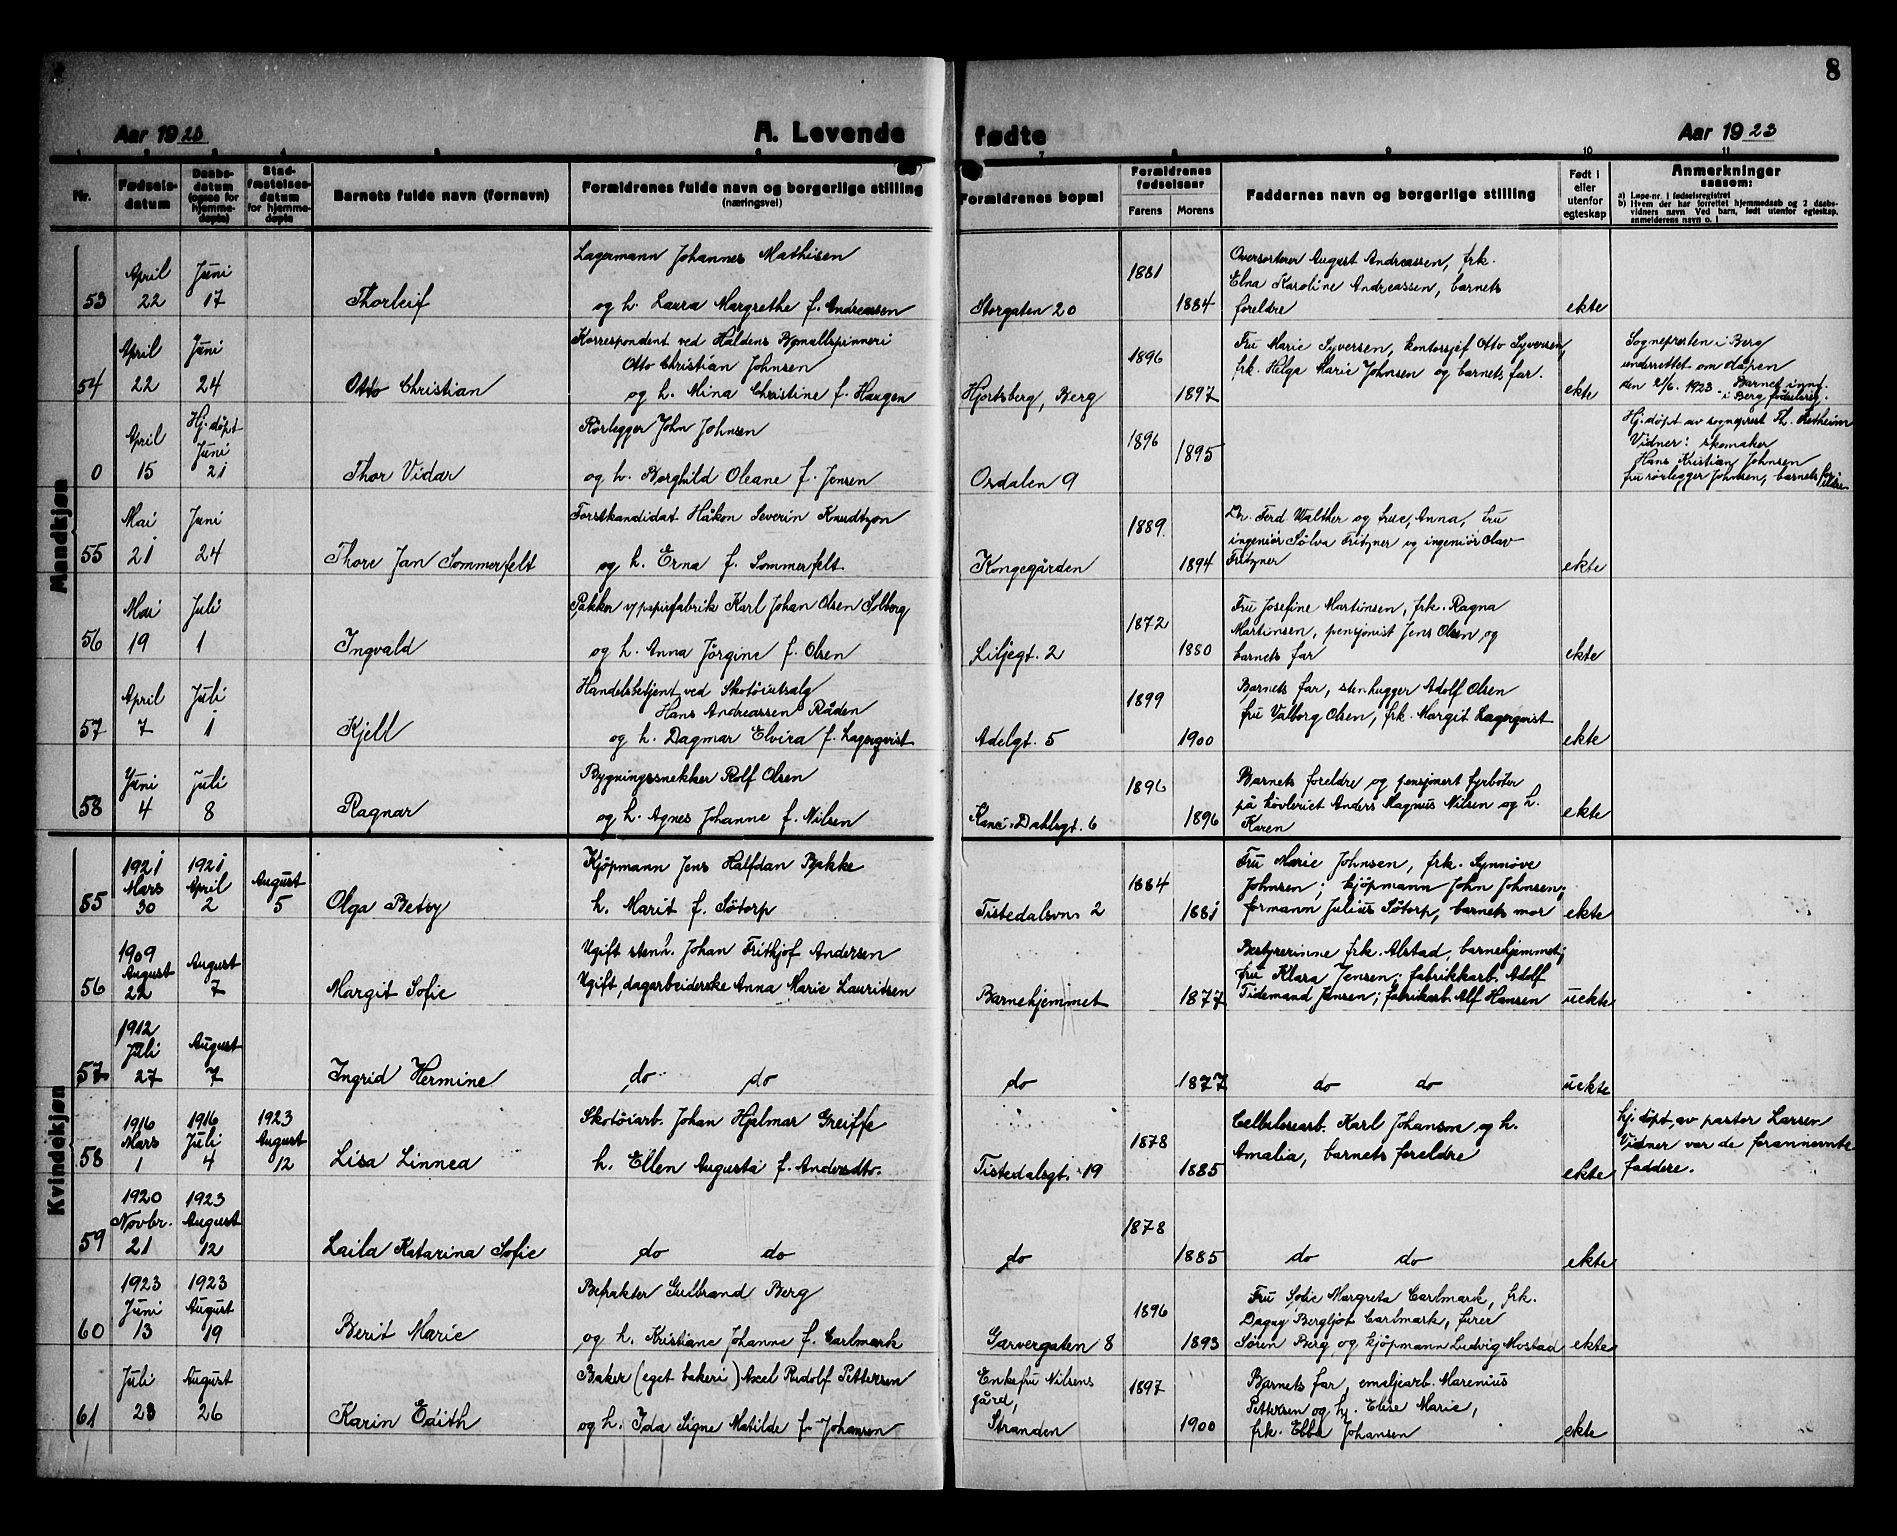 8
Aar 1923 A. Levende fødte Aar 1923
1 2 3 4 5 6 7 8 9 10 11
Nr. | Fødselsdatum | Daabsdatum (ogsaa for hjemmedøpte) | Stadfæstelsesdatum for hjemmedøpte | Barnets fulde navn (fornavn) | Forældrenes fulde navn og borgerlige stilling (næringsvei) | Forældrenes bopæl | Forældrenes fødselsaar Farens Morens | Faddernes navn og borgerlige stilling | Født i eller utenfor egteskap | Anmerkninger saasom:
a) Løpe-nr. i fødselsregistret
b) Hvem der har forrettet hjemmedaab og 2 daabsvidners navn Ved barn, født utenfor egteskap, anmelderens navn o. l
Mandkjøn
53 April 22 Juni 17 Thorleif
Lagermann Johannes Mathisen
og h. Laura Margrethe f. Andreassen
Storgaten 20 1881 1884
Oversorterer August Andreassen, frk.
Elna Karoline Andreassen, barnets
foreldre
ekte
54 April 22 Juni 24 Otto Christian
Korrespondent ved Haldens Bomullspinneri
Otto Christian Johnsen
og h. Mina Christine f. Haugen
Hjortsberg, Berg 1896 1897
Fru Marie Syversen, kontorsjef Otto Syversen,
frk. Helga Marie Johnsen og barnets far.
ekte
Sognepresten i Berg
underrettet om dåpen
den 21/6. 1923. Barnet innf.
i Berg fødselsreg.
0 April 15 Hj. døpt Juni 21 Thor Vidar
Rørlegger John Johnsen
og h. Borghild Oleane f. Jensen
Osdalen 9 1896 1895
Hj. døpt av sogneprest Th.
Vidner: skomaker
Hans Kristian Johnsen
fru rørlegger Johnsen, barnets
55 Mai 21 Juni 24 Thore Jan Sommerfelt
Forstkandidat Håkon Severin Knudtzon
og h. Erna f. Sommerfelt.
Kongegården 1889 1894
Dr. Ferd Walther og frue, Anna, fru
ingeniør Sølva Fritzner og ingeniør Olav
Fritzner
ekte
56 Mai 19 Juli 1 Ingvald
Pakker v/papirfabrik Karl Johan Olsen Solberg
og h. Anna Jørgine f. Olsen
Liljegt. 2 1872 1880
Fru Josefine Martinsen, frk. Ragna
Martinsen, pensjonist Jens Olsen og
barnets far
ekte
57 April 7 Juli 1 Kjell
Handelsbetjent ved Skotøiutsalg
Hans Andreassen Råden
og h. Dagmar Elvira f. Lagerqvist
Adelgt. 5 1899 1900
Barnets far, stenhugger Adolf Olsen
fru Valborg Olsen, frk. Margit Lagerqvist
ekte
58 Juni 4 Juli 8 Ragnar
Bygningssnekker Rolf Olsen
og h. Agnes Johanne f. Nilsen
Dahlsgt. 6 1896 1896
Barnets foreldre og pensjonert fyrbøter
på høvleriet Anders Magnus Nilsen og h.
Karen
ekte
Kvindekjøn
55 1921 Mars 30 1921 April 2 August 5 Olga Betsy
Kjøpmann Jens Halfdan Bakke
h. Marit f. Søtorp
Tistedalsvn 2 1884 1881
Fru Marie Johnsen, frk. Synnøve
Johnsen; kjøpmann John Johnsen;
formann Julius Søtorp, barnets mor
ekte
56 1909 August 22 August 7 Margit Sofie
Ugift stenh. Johan Frithjof Andersen
Ugift, dagarbeiderske Anna Marie Lauritsen
Barnehjemmet 1877
Bestyrerinne frk. Alstad, barnehjemmet;
fru Klara Jensen; fabrikkarb. Adolf
Tidemand Jensen; fabrikarb. Alf Hansen
uekte
57 1912 Juli 27 August 7 Ingrid Hermine
do do
do 1877
do do
uekte
58 1916 Mars 1 1916 Juli 4 1923 August 12 Lisa Linnea
Skotøiarb. Johan Hjalmar Greiffe
h. Ellen Augusta f. Andersdtr.
Tistedalsgt. 19 1878 1885
Cellulosearb. Karl Johanson og h.
Amalia, barnets foreldre
ekte
hj. døpt, av pastor Larsen
Vidner var de forannevnte
faddere.
59 1920 Novbr. 21 1923 August 12 Laila Katarina Sofie
do do
do 1878 1885
do do
ekte
60 1923 Juni 13 1923 August 19 Berit Marie
Gulbrand Berg
og h. Kristiane Johanne f. Carlmark
Garvergaten 8 1896 1893
Fru Sofie Margreta Carlmark, frk.
Dagny Bergljot Carlmark, furer
Søren Berg og kjøpmann Ludvig Mostad
ekte
61 Juli 23 August 26 Karin Edith
Baker (eget bakeri) Axel Rudolf Pettersen
og h. Ida Signe Matilde f. Johansen
Enkefru Nilsens
gård,
Stranden 1897 1900
Barnets far, emaljearb. Marenius
Pettersen og h. Elise Marie,
frk. Ebba Johansen
ekte